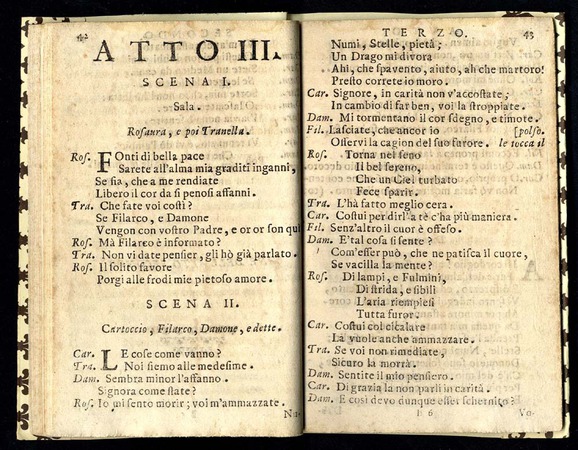 ATTO III.
SCENA I.
Sala.
Rosaura, e poi Tranella.
Ros. FOnti di bella pace
Sarete all'alma mia graditi inganni,
Se fia, che a me rendiate
Libero il cor da sì penosi affanni.
Tra. Che fate voi costì?
Se Filarco, e Damone
Vengon con vostro Padre, e or or son quì
Ros. Mà Filarco è informato?
Tra. Non vi date pensier, gli hò già parlato.
Ros. Il solito favore
Porgi alle frodi mie pietoso amore.
SCENA II.
Cartoccio, Filarco, Damone, e dette.
Car. LE cose come vanno?
Tra. Noi siemo alle medesime.
Dam. Sembra minor l'affanno.
Signora come state?
Ros. Io mi sento morir; voi m'ammazzate.
Nu-
TERZO. 43
Numi, Stelle, pietà;
Un Drago mi divora
Ahi, che spavento, aiuto, ah che martoro!
Presto correte io moro.
Car. Signore, in carità non v'accostate;
In cambio di far ben, voi la stroppiate.
Dam. Mi tormentano il cor sdegno, e timore.
Fil. Lasciate, che ancor io [polso.
Osservi la cagion del suo furore. le tocca il
Ros. Torna nel seno
Il bel sereno,
Che un Ciel turbato
Fece sparir.
Tra. L'hà fatto meglio cera.
Car. Costui per dirl'a tè c'ha più maniera.
Fil. Senz'altro il cuor è offeso.
Dam. E' tal cosa si sente?
Com'esser può, che ne patisca il cuore,
Se vacilla la mente?
Ros. Di lampi, e Fulmini,
Di strida, e sibili
L'aria riempiesi
Tutta furor.
Car. Costui col cicalare
La vuole anche ammazzare.
Tra. Se voi non rimediate,
Sicuro la morrà.
Dam. Sentite il mio pensiero.
Car. Di grazia la non parli in carità.
Dam. E così devo dunque esser schernito?
6 Vo-